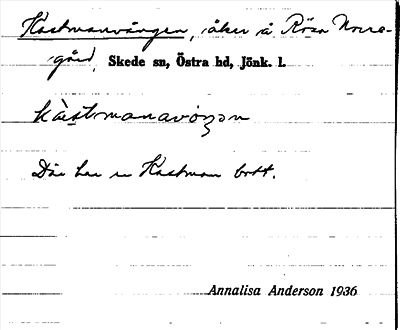 Kastmanvången, åker å Rösa Norre-
gård, Skede sn, Östra hd, Jönk. l.
kàstmanavoŋən
Där har en Kastman bott.
Annalisa Anderson 1936